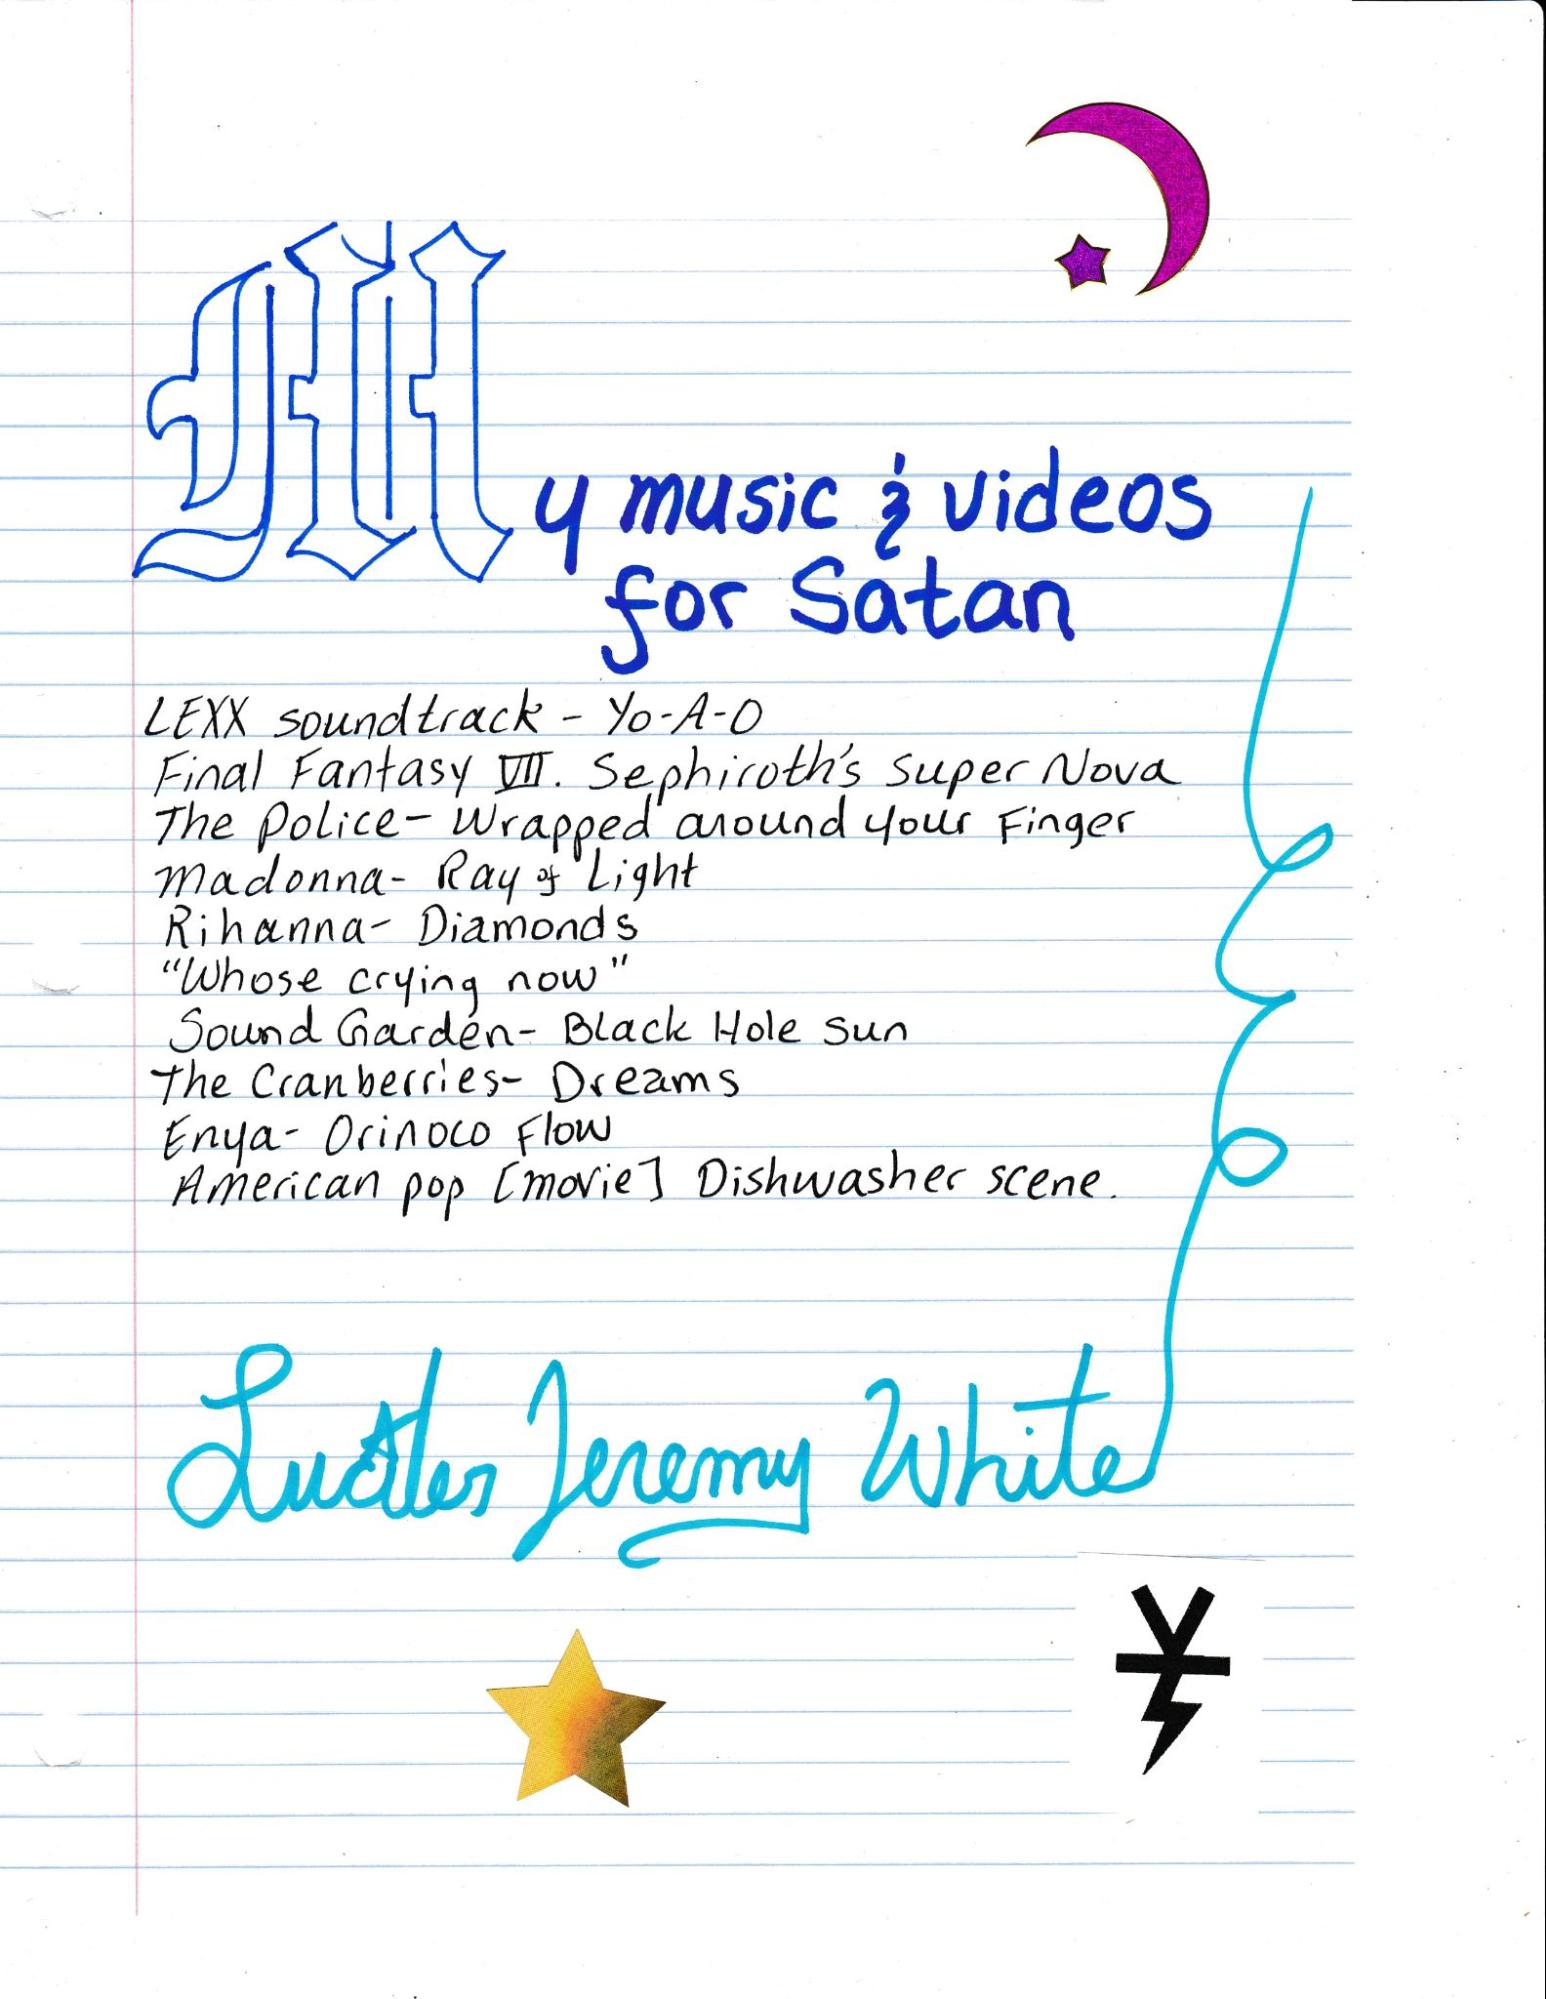 My music & videos
for Satan
LEXX soundtrack - Yo-A-O
Final Fantasy VII. Sephiroth's Super Nova
The Police- Wrapped around your Finger
Madonna- Ray of Light
Rihanna- Diamonds
"Whose crying now"
Sound Garden- Black Hole Sun
The Cranberries- Dreams
Enya- Orinoco Flow
American pop [movie] Dishwasher scene.
Jeremy White